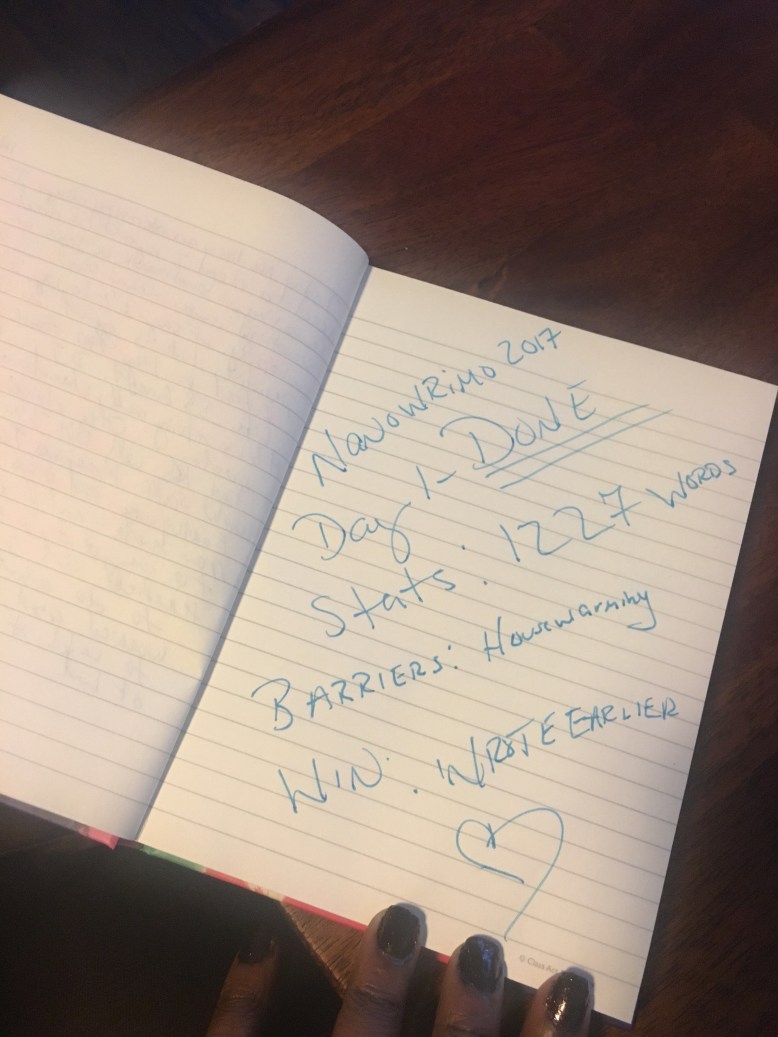 NanoWRiMo 2017
Day 1 - DONE
Stats: 1227 WORDS
BARRIERS: Housewarming
WIN: WROTE EARLIER